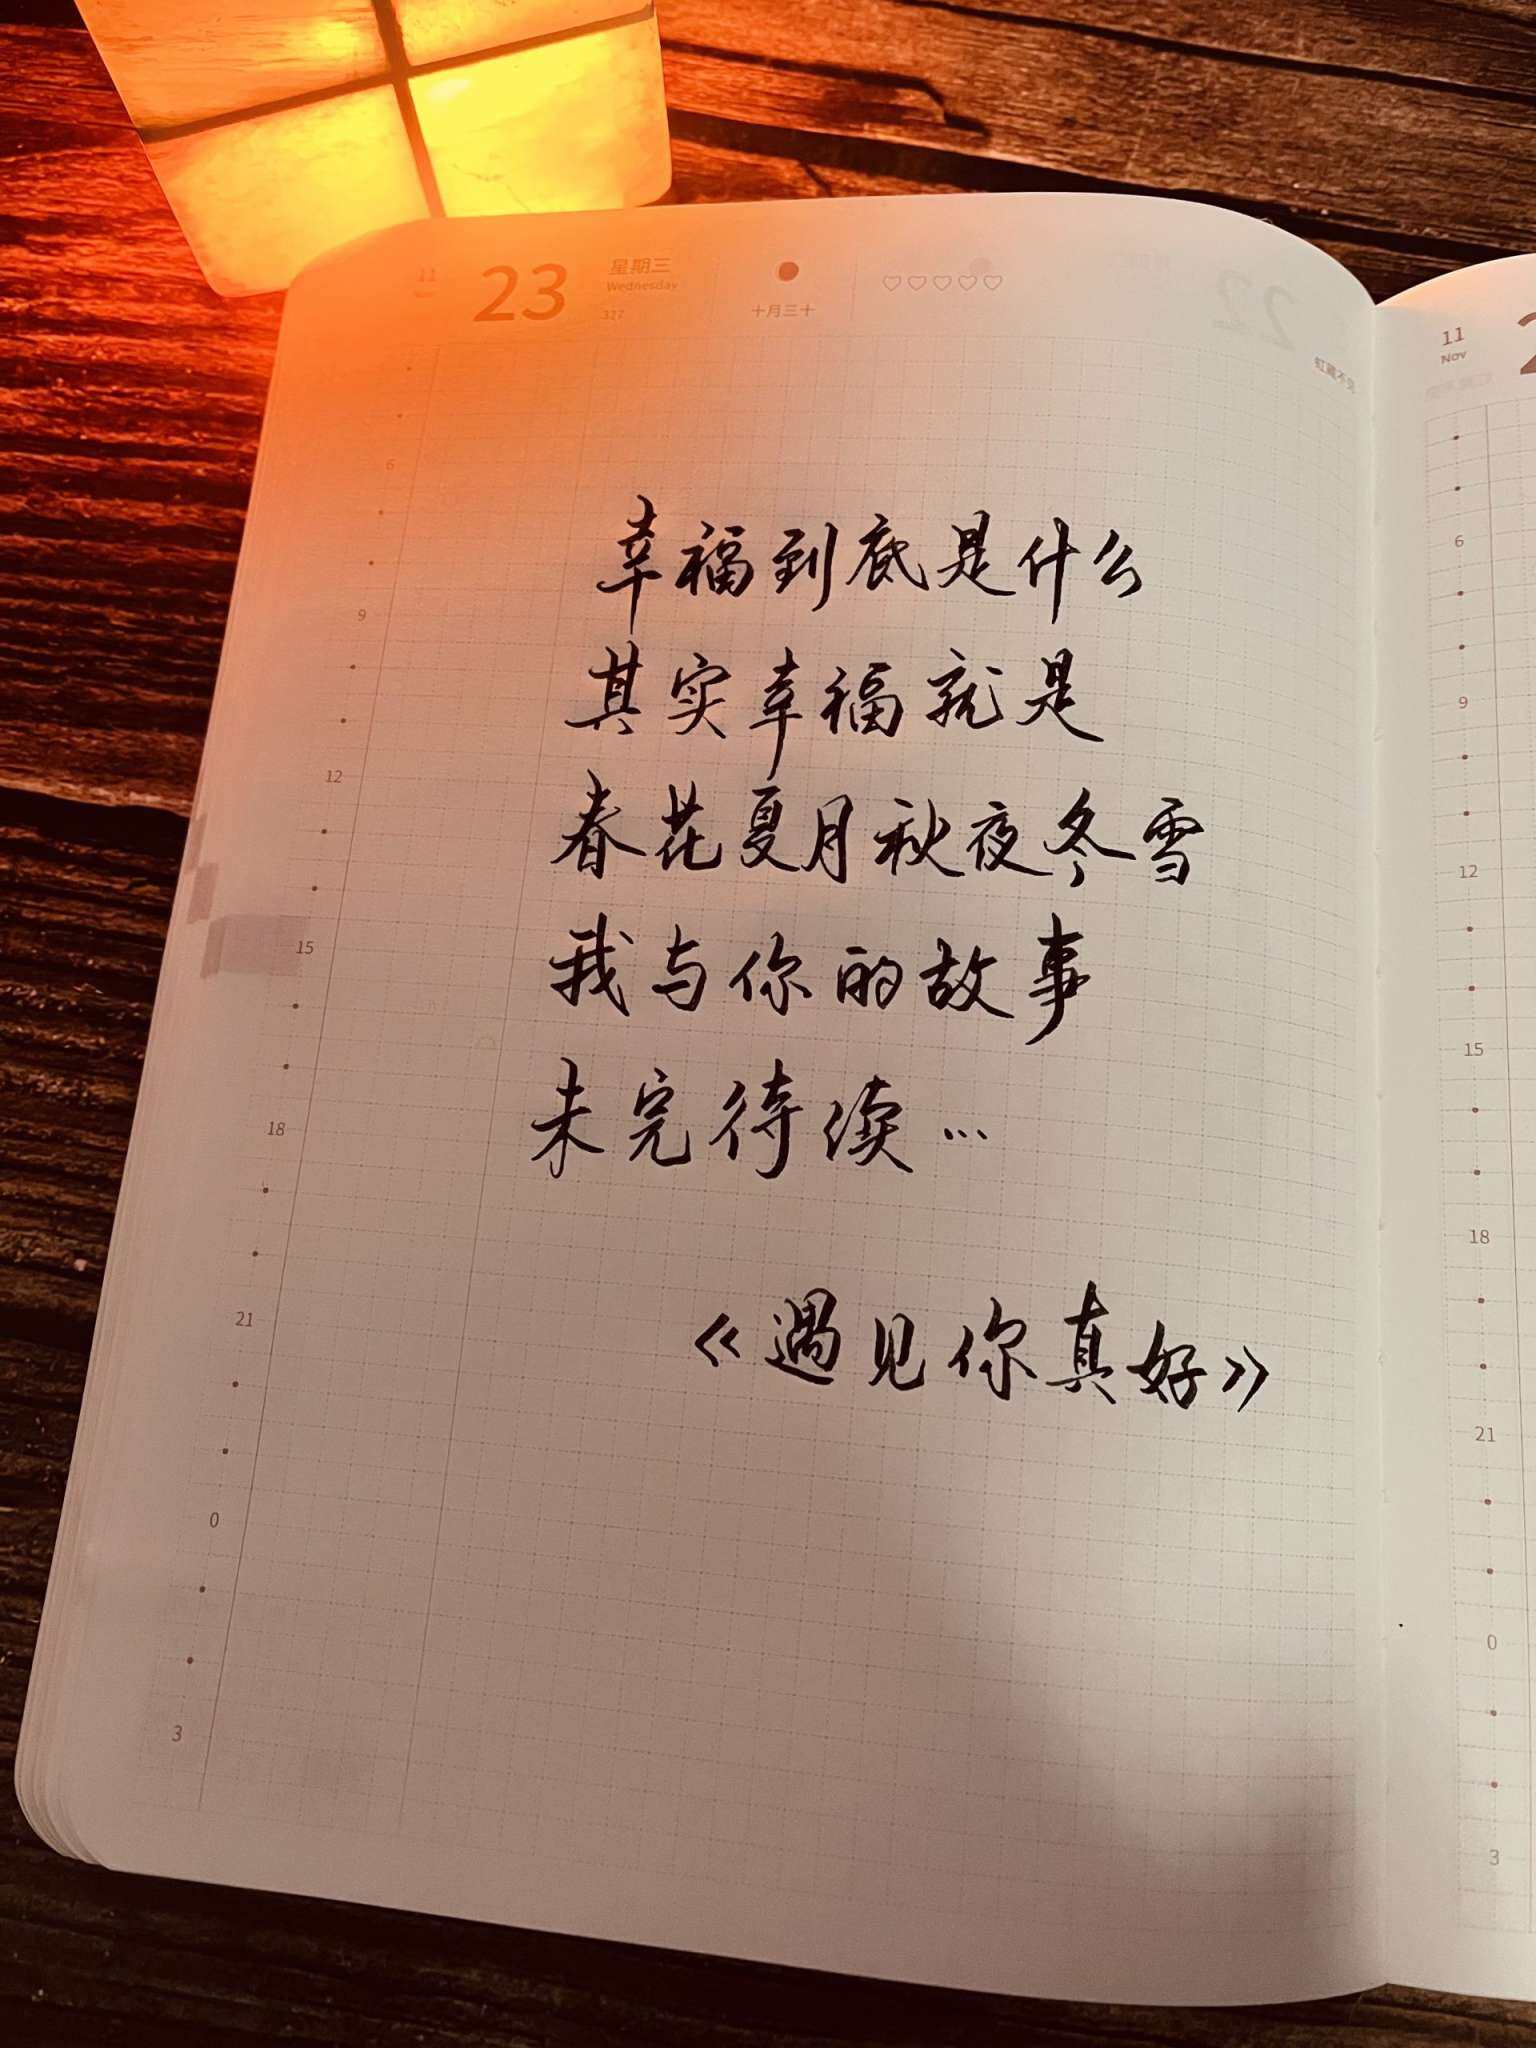 11
23
星期三
Wednesday
327
十月三十
6
9
12
15
18
21
0
3
幸福到底是什么
其实幸福就是
春花夏月秋夜冬雪
我与你的故事
未完待续…
《遇见你真好》
11
Nov
6
9
12
15
18
21
0
3